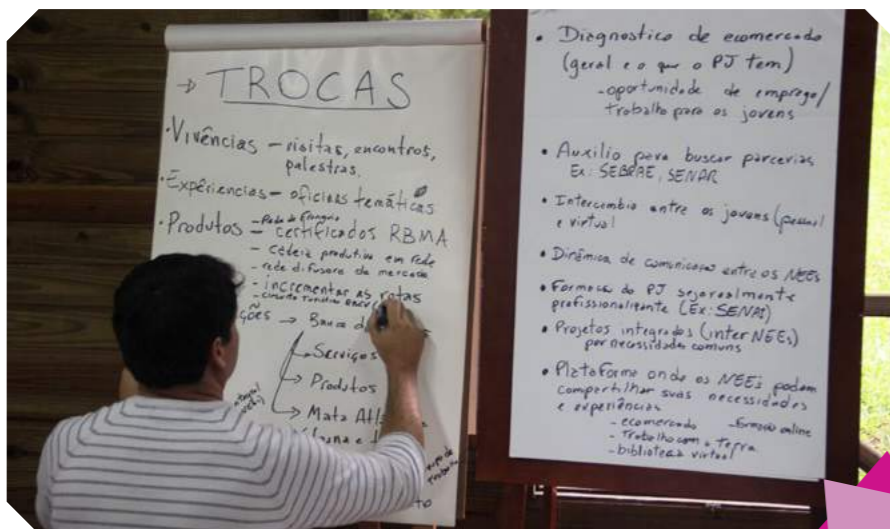 → TROCAS
• Vivências – visitas, encontros,
palestras.
• Expêriencias – oficinas temáticas
• Produtos
– certificados RBMA
– cadeia produtiva em rede
– rede difusora de mercado
– incrementar as rotas
ções → Banco d
→ Serviços
→ Produtos
→ Mata Atl
• Diagnostico de ecomercado
(geral e o que o PJ tem)
- oportunidade de emprego/
trabalho para os jovens
• Auxilio para buscar parcerias
Ex: SEBRAE, SENAR
• Intercambio entre os jovens (pessoal
e virtual
• Dinâmica de comunicação entre os NEEs
• Formacao do PJ seja realmente
profissionalizante (Ex: SENAI)
• Projetos integrados (inter NEEs)
por necessidades comuns
• Plataforma onde os NEEs podem
compartilhar suas necessidades
e experiências
- ecomercado - formacao online
- Trabalho com a Terra
- biblioteca virtual